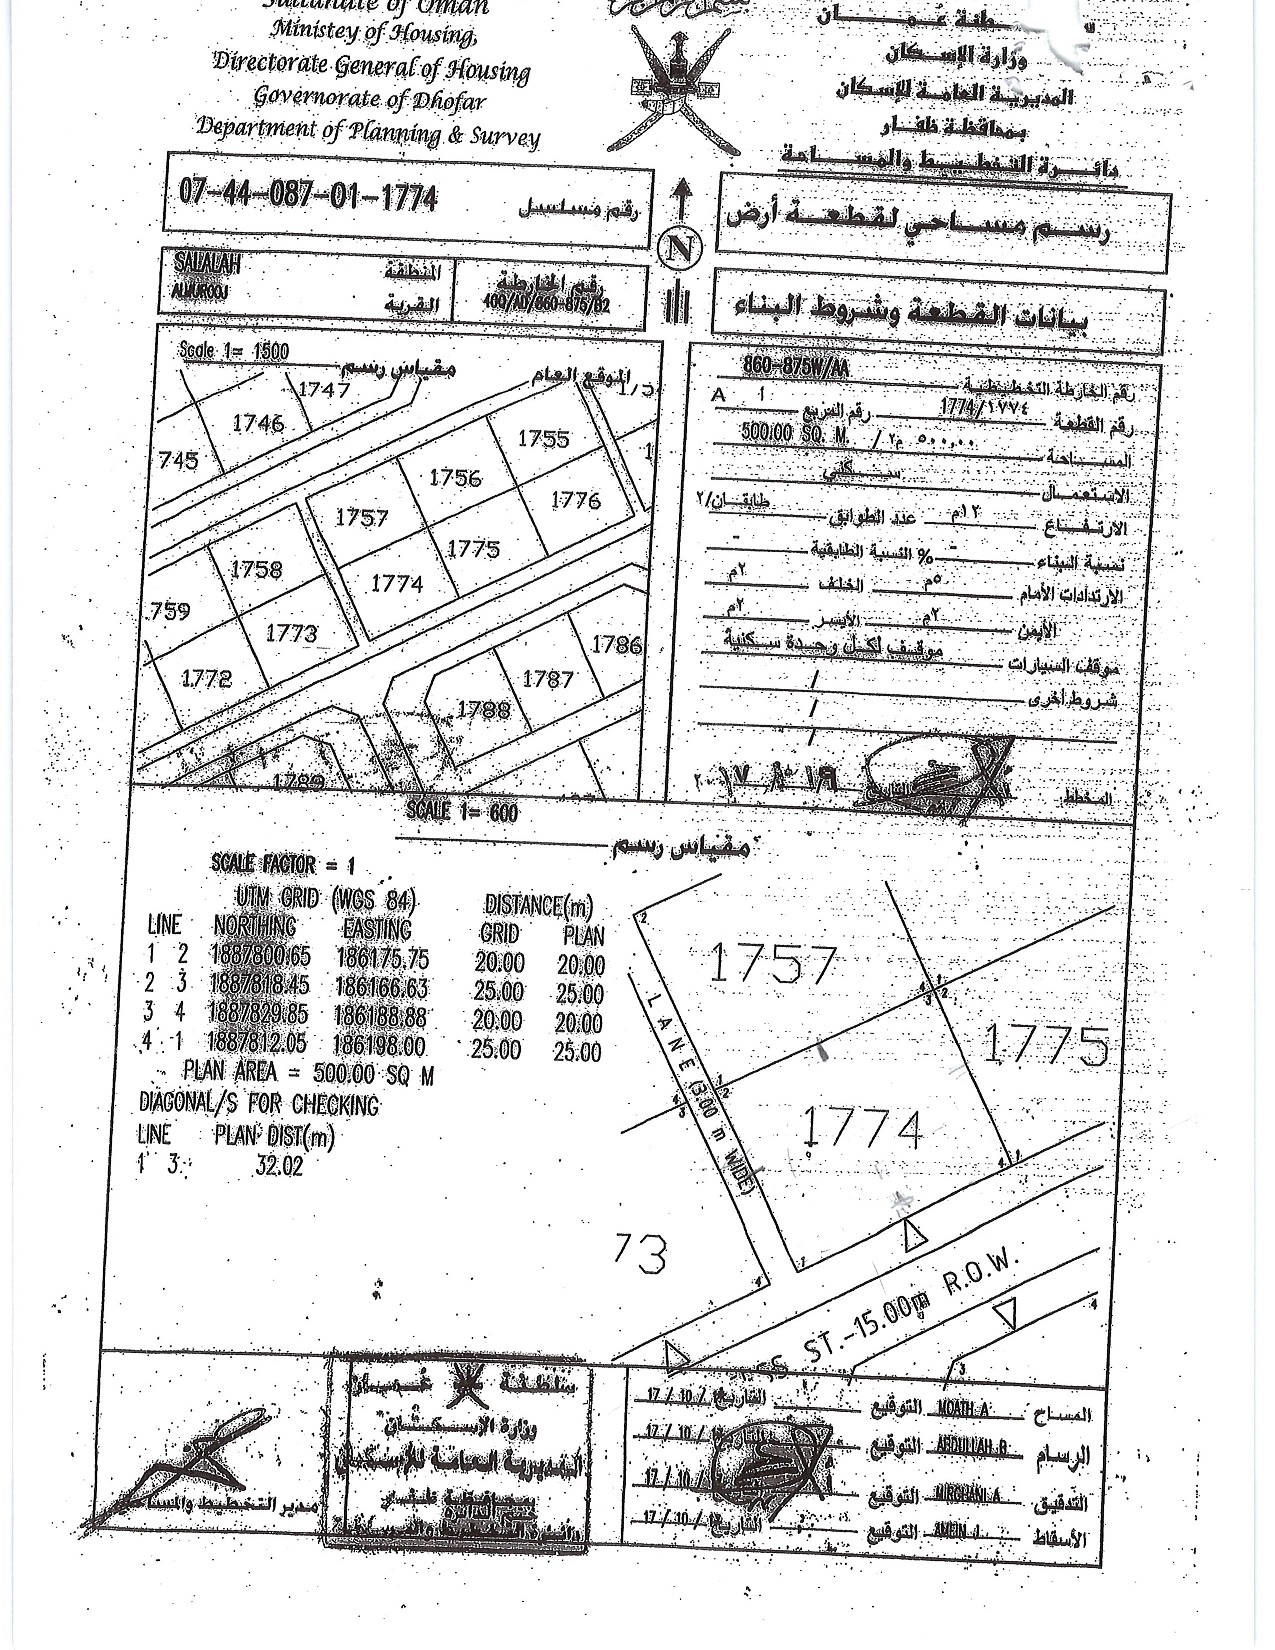 Sultanate of Oman
Ministey of Housing,
Directorate General of Housing
Governorate of Dhofar
Department of Planning & Survey
سلطنة عُمـــان
وزارة الإسـكان
المديرية العامة للإسكان
بمحافظة ظفار
دائـرة التخطيـط والمساحة
07-44-087-01-1774 رقم مسلسل
N
رســم مســاحي لقطعــة أرض
SALALAH المنطقة
ALMUROOJ القرية
رقم الخارطة
400/AD/860-875/82
بيانات القطعة وشروط البناء
Scale 1= 1500 مقياس رسم
الموقع العام
1747
1746
745
1755
1756
1776
1757
1775
1758
1774
759
1773
1772
1786
1787
1788
1789
رقم الخارطة التخطيطية 860-875W/AA
رقم القطعة 1774/١٧٧٤ رقم المربع ١ A
المساحة ٥٠٠,٠٠ م٢ / 500.00 SQ. M.
الإستعمال سكني
الارتفاع ١٢م عدد الطوابق طابقان/٢
نسبة البناء - % النسبة الطابقية -
الأرتدادات الأمام ٥م الخلف ٢م
الأيمن ٢م الأيسر ٢م
موقف السيارات موقف لكل وحدة سكنية
شروط أخرى /
/
/
المخطط
SCALE 1= 600
مقياس رسم
SCALE FACTOR = 1
UTM GRID (WGS 84) DISTANCE(m)
LINE NORTHING EASTING GRID PLAN
1 2 1887800.65 186175.75 20.00 20.00
2 3 1887818.45 186166.63 25.00 25.00
3 4 1887829.85 186188.88 20.00 20.00
4 1 1887812.05 186198.00 25.00 25.00
PLAN AREA = 500.00 SQ M
DIAGONAL/S FOR CHECKING
LINE PLAN DIST(m)
1 3 32.02
1757
1775
1774
73
LANE (3.00 m WIDE)
ST.-15.00m R.O.W.
سلطنة عمان
وزارة الإسكان
المديرية العامة للإسكان
بمحافظة ظفار
مدير التخطيط والمساحة
المساح MOATH A التوقيع التاريخ 17 / 10 /
الرسام ABDULLAH B التوقيع التاريخ 17 / 10 /
التدقيق MIRGHANI A التوقيع 17 / 10 /
الأسقاط AMEIN J. التوقيع التاريخ 17 / 10 /